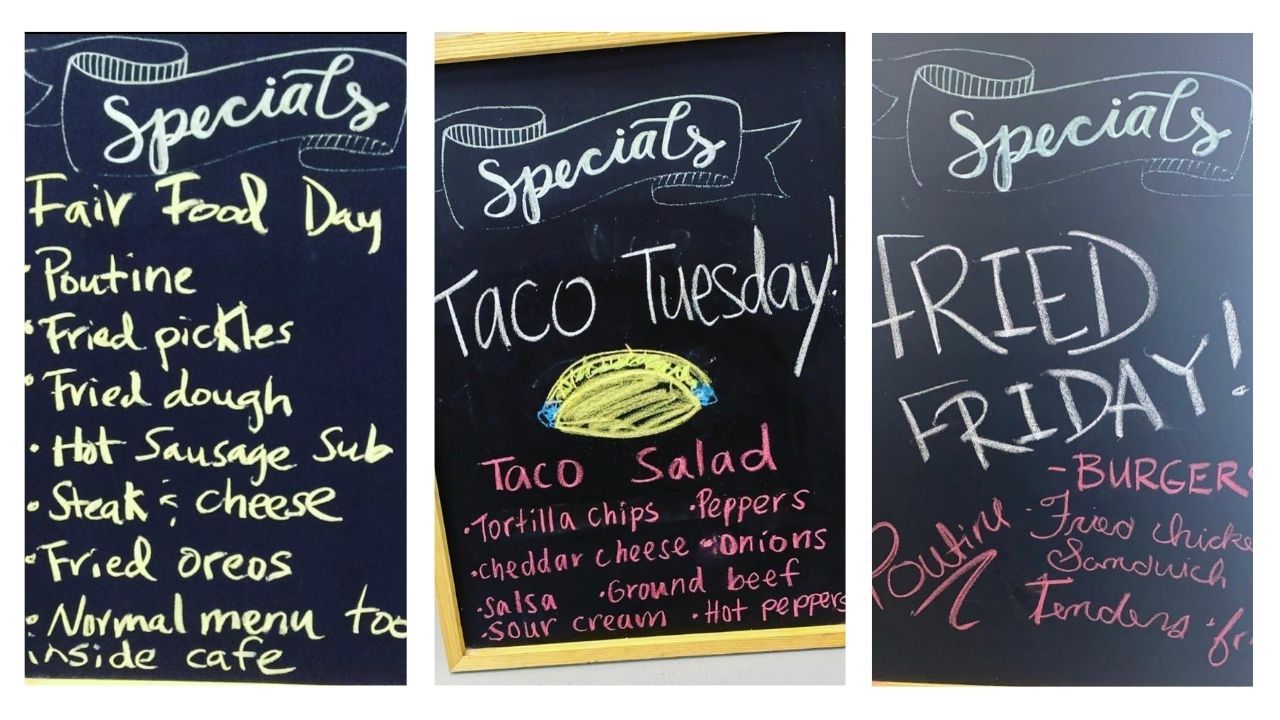 Specials
Fair Food Day
• Poutine
• Fried pickles
• Fried dough
• Hot Sausage Sub
• Steak & cheese
• Fried oreos
• Normal menu too
inside cafe
Specials
Taco Tuesday!
Taco Salad
• Tortilla chips • Peppers
• cheddar cheese • onions
• salsa • Ground beef
• sour cream • Hot peppers
Specials
FRIED
FRIDAY!
- BURGERS
Poutine • Fried chicke
Sandwich
Tenders • fr